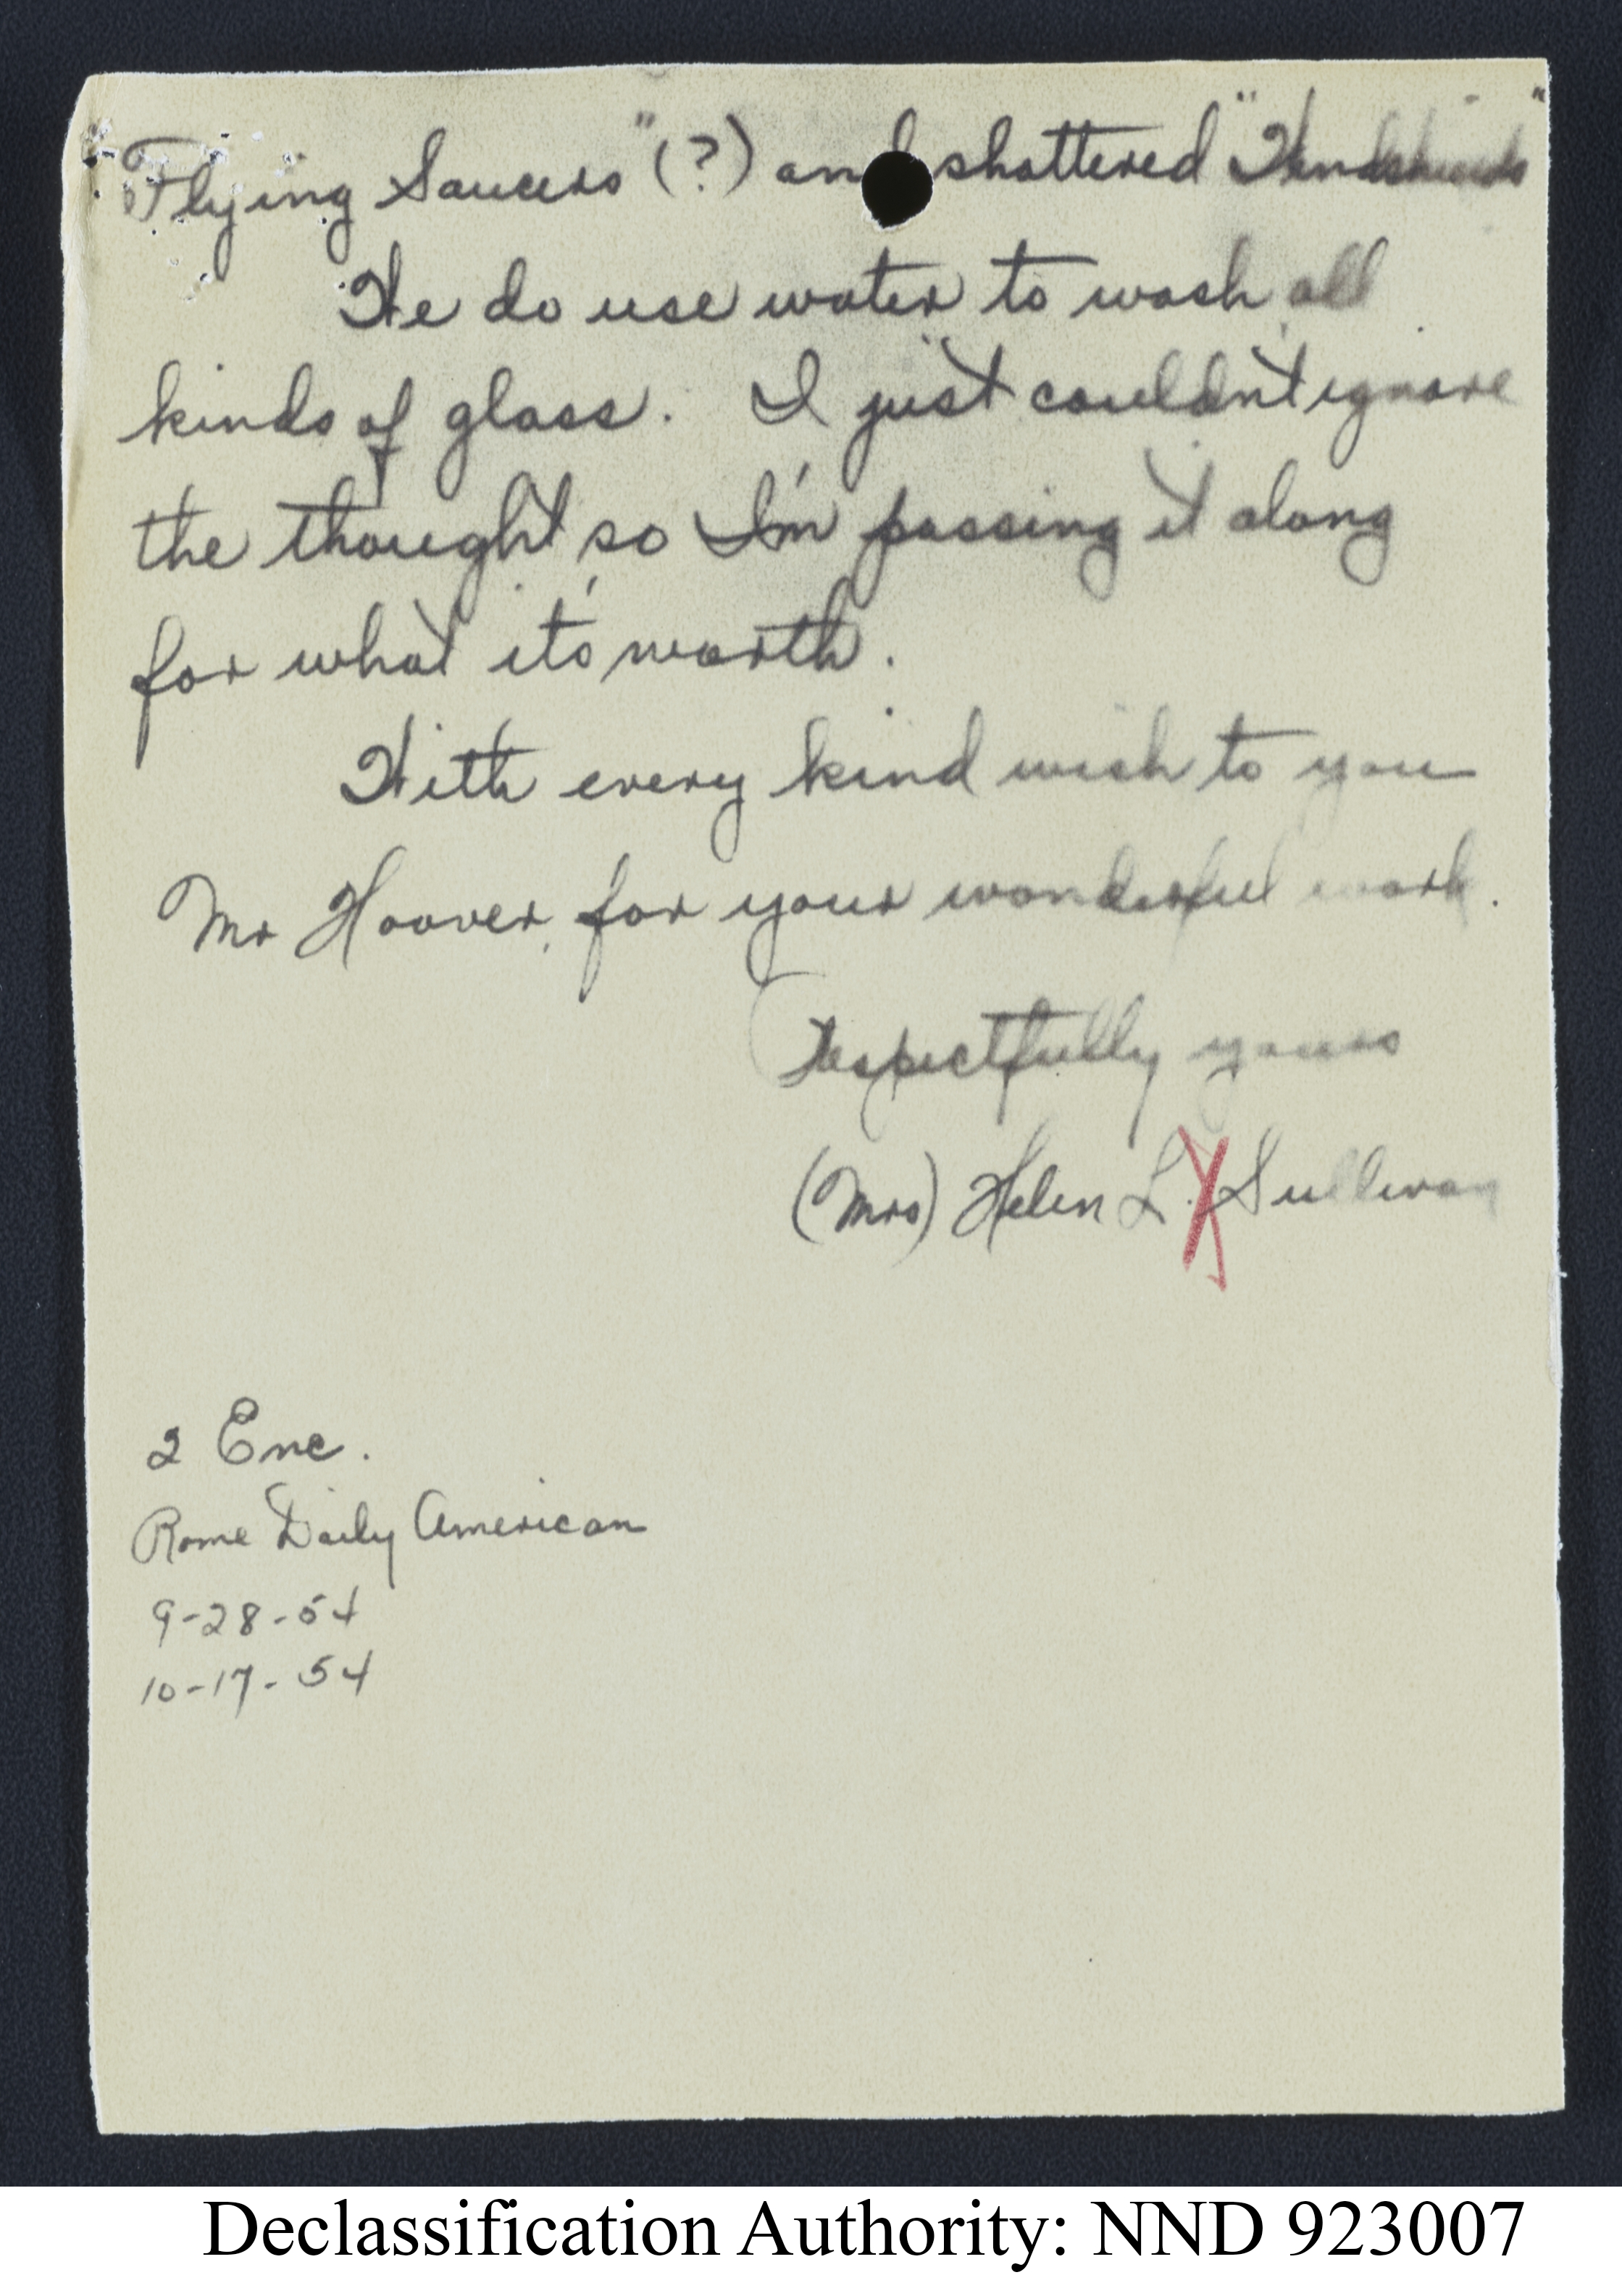 Flying Saucers" (?) and shattered "Windshields"
We do use water to wash all
kinds of glass. I just couldn't ignore
the thought, so I'm passing it along
for what it's worth.
With every kind wish to you
Mr Hoover, for your wonderful work.
Respectfully yours
(Mrs) Helen L. Sullivan
2 Enc.
Rome Daily American
9-28-54
10-17-54
Declassification Authority: NND 923007